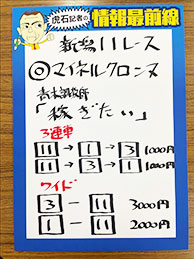 虎石記者の
情報最前線
新潟11レース
◎マイネルクロンヌ
青木調教師
「稼ぎたい」
3連単
11→1→3 1000円
11→3→1 1000円
ワイド
3－11 3000円
1－11 2000円